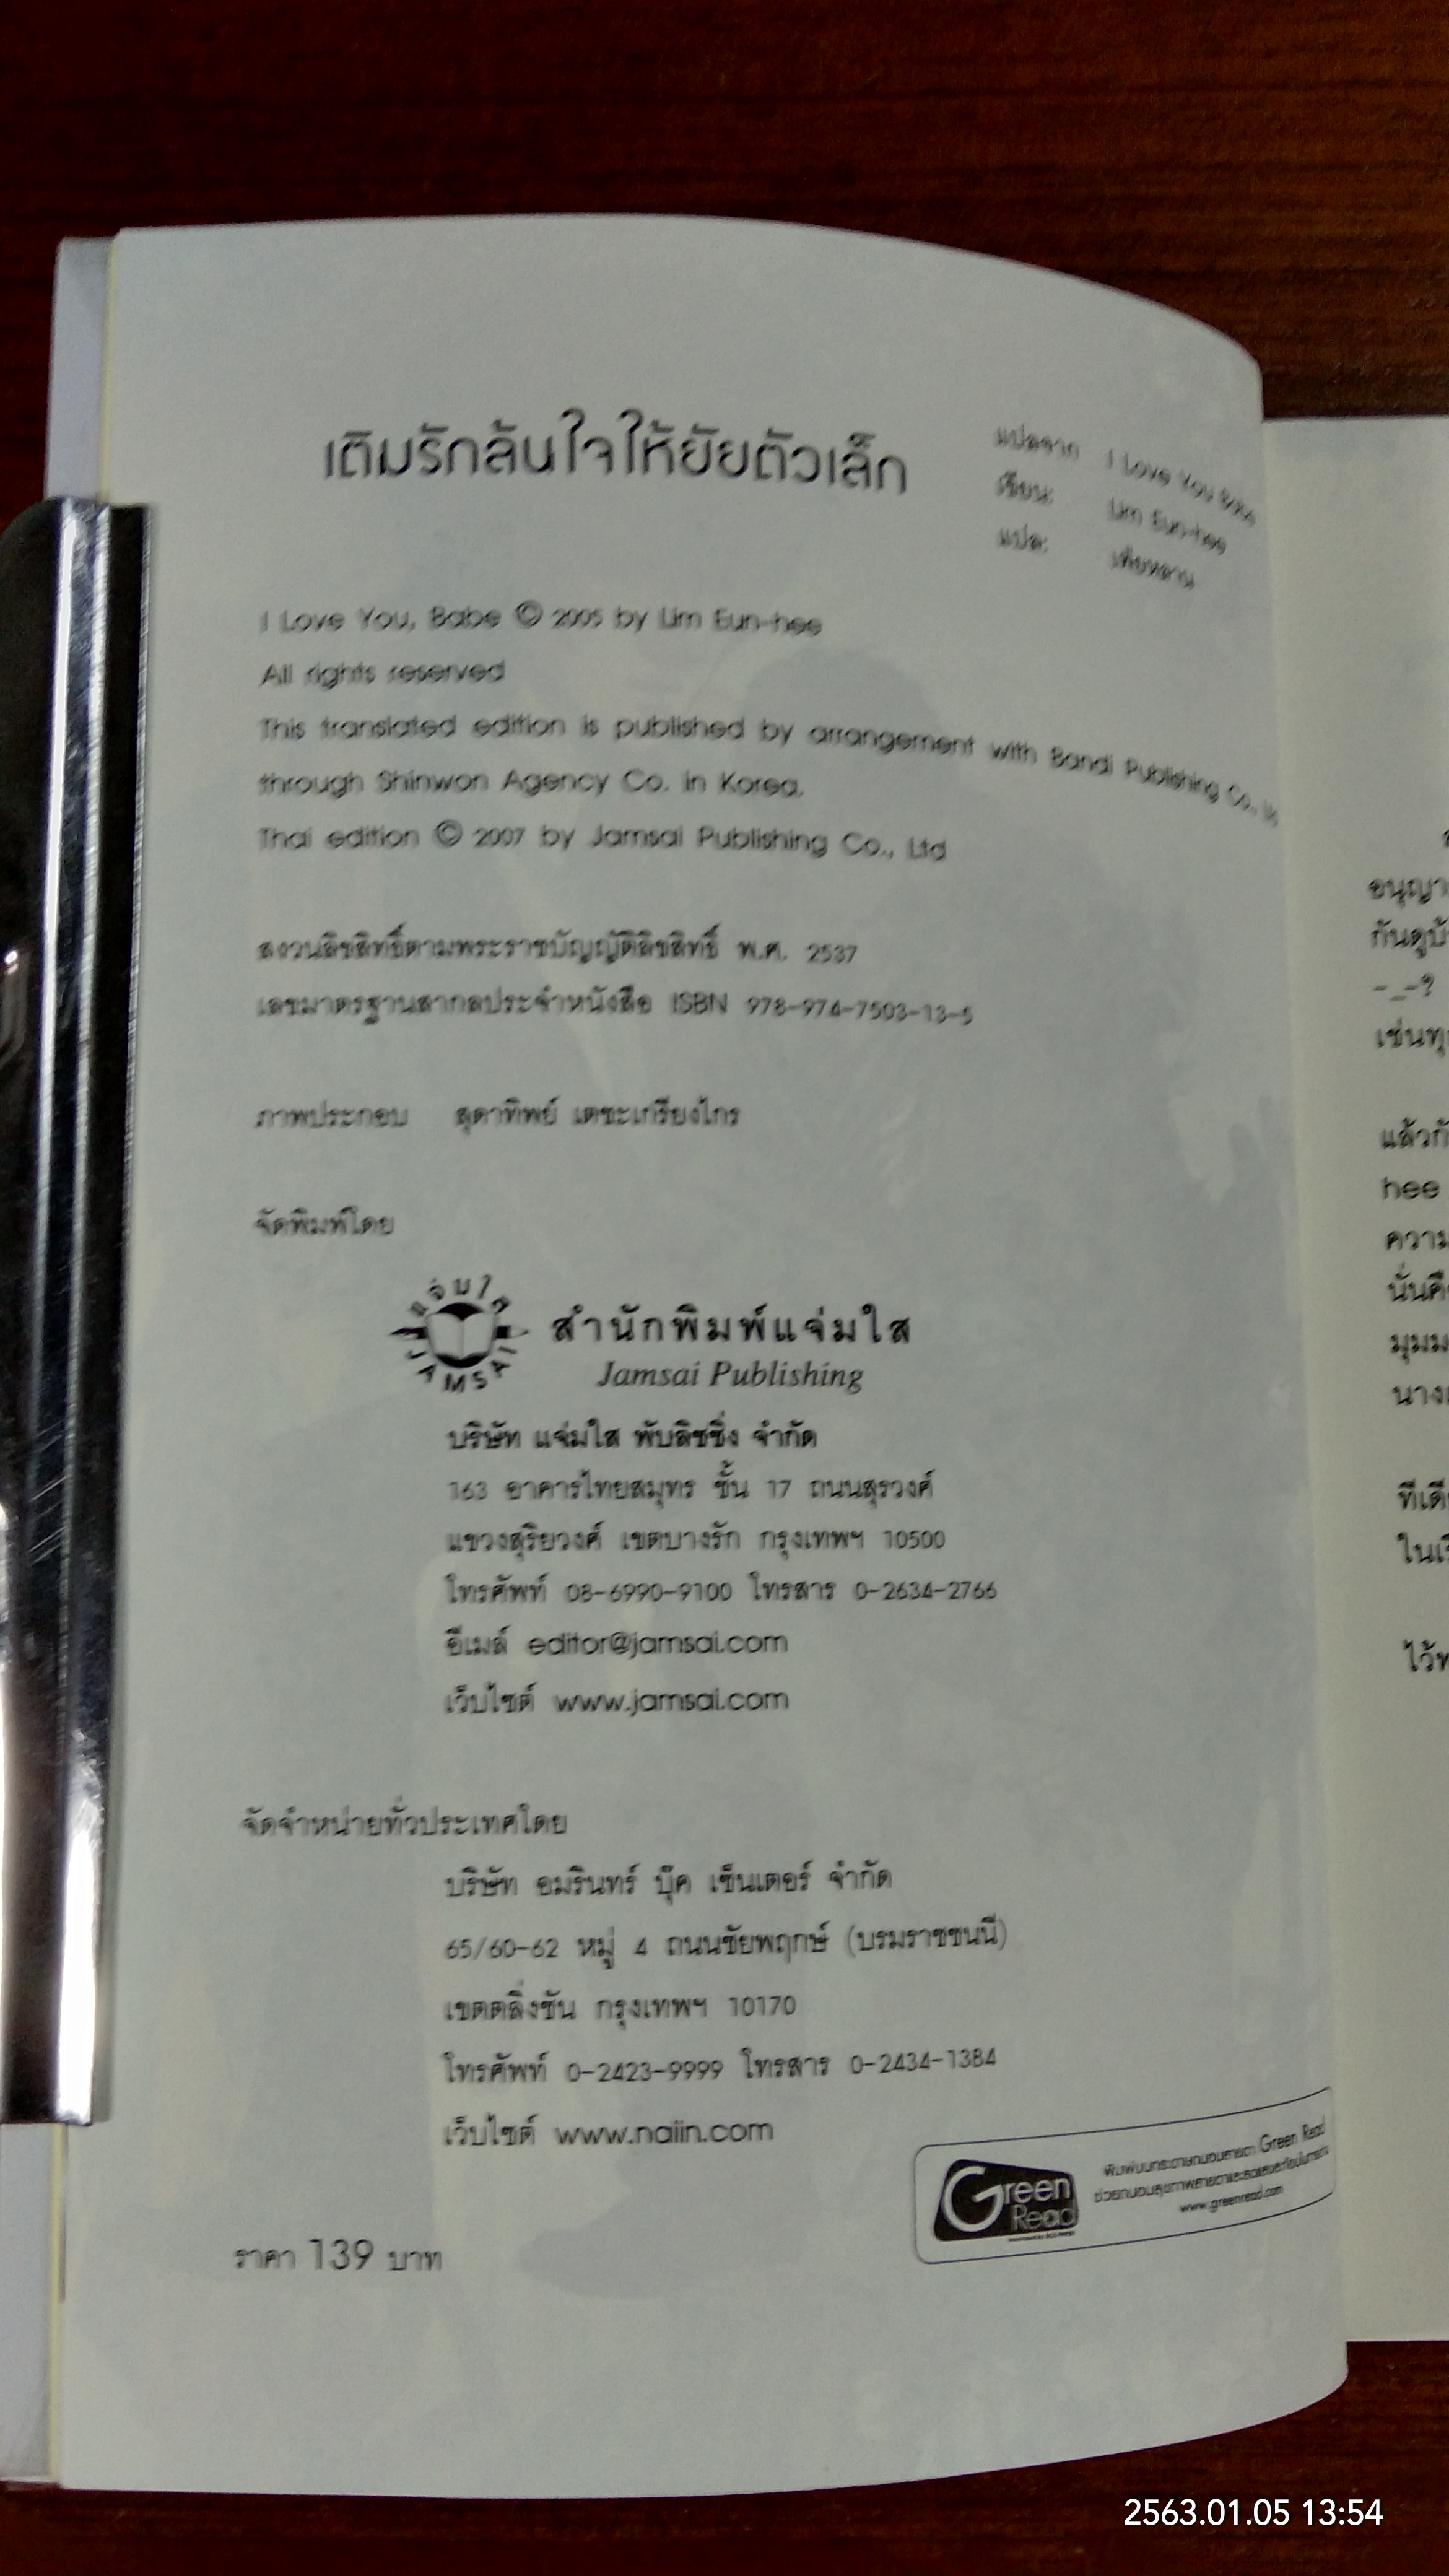 เติมรักล้นใจให้ยัยตัวเล็ก
แปลจาก I Love You Babe
เขียน: Lim Eun-hee
แปล:
I Love You, Babe © 2005 by Lim Eun-hee
All rights reserved
This translated edition is published by arrangement with Bandi Publishing Co.,
through Shinwon Agency Co. in Korea.
Thai edition © 2007 by Jamsai Publishing Co., Ltd
สงวนลิขสิทธิ์ตามพระราชบัญญัติลิขสิทธิ์ พ.ศ. 2537
เลขมาตรฐานสากลประจำหนังสือ ISBN 978-974-7503-13-5
ภาพประกอบ สุดาทิพย์ เตชะเกรียงไกร
จัดพิมพ์โดย
แจ่มใส
JAMSAI
สำนักพิมพ์แจ่มใส
Jamsai Publishing
บริษัท แจ่มใส พับลิชชิ่ง จำกัด
163 อาคารไทยสมุทร ชั้น 17 ถนนสุรวงศ์
แขวงสุริยวงศ์ เขตบางรัก กรุงเทพฯ 10500
โทรศัพท์ 08-6990-9100 โทรสาร 0-2634-2766
อีเมล์ editor@jamsai.com
เว็บไซต์ www.jamsai.com
จัดจำหน่ายทั่วประเทศโดย
บริษัท อมรินทร์ บุ๊ค เซ็นเตอร์ จำกัด
65/60-62 หมู่ 4 ถนนชัยพฤกษ์ (บรมราชชนนี)
เขตตลิ่งชัน กรุงเทพฯ 10170
โทรศัพท์ 0-2423-9999 โทรสาร 0-2434-1384
เว็บไซต์ www.naiin.com
Green Read
พิมพ์บนกระดาษถนอมสายตา Green Read
www.greenread.com
ราคา 139 บาท
อนุญา
กันดูบ้
-_-?
เช่นทุ
แล้วก็
hee
ความ
นั่นคื
มุมม
นางเ
ทีเดี
ในเ
ไว้ท
2563.01.05 13:54